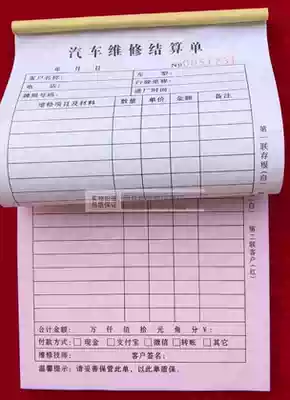 汽车维修结算单
年 月 日 No 0051251
客户名称: 车 型:
电 话: 行驶里程:
牌照号码: 进厂时间:
维修项目及材料 数量 单价 金额 备注
第一联存根(白)
实物拍摄
品质保证
(白) 第二联客户(红)
合计金额: 万 仟 佰 拾 元 角 分 ¥:
付款方式: □现金 □支付宝 □微信 □转账 □其它
维修技师: 客户签名:
温馨提示: 请妥善保管此单, 以此单质保。